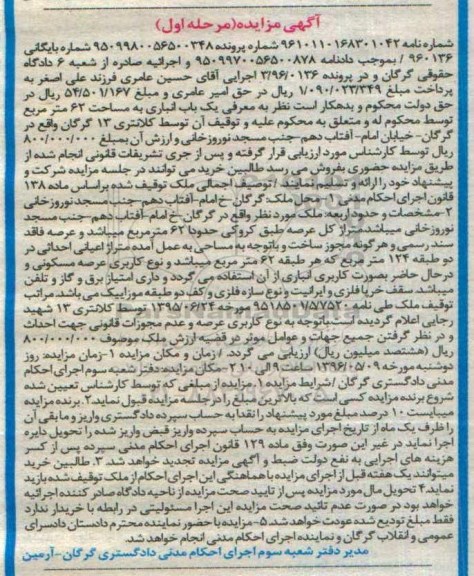 آگهی مزایده(مرحله اول)
شماره نامه ۹۶۱۰۱۱۰۱۶۸۳۰۱۰۴۲ شماره پرونده ۹۵۰۹۹۸۰۰۵۶۵۰۰۳۴۸ شماره بایگانی
۹۶۰۱۳۶ / بموجب دادنامه ۹۵۰۹۹۷۰۰۵۶۵۰۰۸۷۸ و اجرائیه صادره از شعبه ۶ دادگاه
حقوقی گرگان و در پرونده ۳/۹۶/۰۱۳۶ اجرایی آقای حسین عامری فرزند علی اصغر به
پرداخت مبلغ ۱/۰۹۰/۰۲۳/۳۴۹ ریال در حق امیر عامری و مبلغ ۵۴/۵۰۱/۱۶۷ ریال در
حق دولت محکوم و بدهکار است نظر به معرفی یک باب انباری به مساحت ۶۲ متر مربع
توسط محکوم له و متعلق به محکوم علیه و توقیف آن توسط کلانتری ۱۳ گرگان واقع در
گرگان- خیابان امام- آفتاب دهم-جنب مسجد نوروزخانی و ارزش آن بمبلغ ۸۰۰/۰۰۰/۰۰۰
ریال توسط کارشناس مورد ارزیابی قرار گرفته و پس از جری تشریفات قانونی انجام شده از
طریق مزایده حضوری بفروش می رسد طالبین خرید می توانند در جلسه مزایده شرکت و
پیشنهاد خود را ارائه و تسلیم نمایند. /توصیف اجمالی ملک توقیف شده براساس ماده ۱۳۸
قانون اجرای احکام مدنی: ۱- محل ملک: گرگان-خ امام-آفتاب دهم-جنب مسجد نوروزخانی
۲-مشخصات و حدود اربعه: ملک مورد نظر واقع در گرگان-خ امام-آفتاب دهم-جنب مسجد
نوروزخانی میباشد متراژ کل عرصه طبق کروکی حدودا ۶۲ مترمربع میباشد و عرصه فاقد
سند رسمی و هرگونه مجوز ساخت و باتوجه به مساحی به عمل آمده متراژ اعیانی احداثی در
دو طبقه ۱۲۴ متر مربع که هر طبقه ۶۲ متر مربع میباشد و نوع کاربری عرصه مسکونی و
درحال حاضر بصورت کاربری انباری از آن استفاده می گردد و داری امتیاز برق و گاز و تلفن
میباشد. سقف خرپا فلزی و ایرانیت و نوع سازه فلزی و کف دو طبقه موزاییک می باشد. مراتب
توقیف ملک طی نامه ۹۵۱۸۵۰۷/۵۷/۵۲۰ مورخه ۱۳۹۵/۰۶/۲۴ توسط کلانتری ۱۳ شهید
رجایی اعلام گردیده است باتوجه به نوع کاربری عرصه و عدم مجوزات قانونی جهت احداث
و در نظر گرفتن جمیع جهات و عوامل موثر در قضیه ارزش ملک موصوف ۸۰۰/۰۰۰/۰۰۰
ریال (هشتصد میلیون ریال) ارزیابی می گردد. /زمان و مکان مزایده ۱-زمان مزایده: روز
دوشنبه مورخه ۱۳۹۶/۰۵/۰۹ ساعت ۹ الی ۱۰ ۲-مکان مزایده: دفتر شعبه سوم اجرای احکام
مدنی دادگستری گرگان /شرایط مزایده ۱. مزایده از مبلغی که توسط کارشناس تعیین شده
شروع برنده مزایده کسی است که بالاترین مبلغ را در جلسه مزایده قبول نماید.۲. برنده مزایده
میبایست ۱۰ درصد مبلغ مورد پیشنهاد را نقدا به حساب سپرده دادگستری واریز و مابقی آن
را ظرف یک ماه از تاریخ اجرای مزایده به حساب سپرده واریز قبض واریز شده را تحویل دایره
اجرا نماید در غیر این صورت وفق ماده ۱۲۹ قانون اجرای احکام مدنی سپرده پس از کسر
هزینه های اجرایی به نفع دولت ضبط و آگهی مزایده تجدید خواهد شد. ۳. طالبین خرید
میتوانند یک هفته قبل از اجرای مزایده با هماهنگی این اجرای احکام از ملک توقیف شده بازید
نماید.۴ تحویل مال مورد مزایده پس از تایید صحت مزایده از ناحیه دادگاه صادر کننده اجرائیه
خواهد بود در صورت عدم تائید صحت مزایده این اجرا مسئولیتی در رابطه با خریدار ندارد
فقط مبلغ تودیع شده عودت خواهد شد. ۵-مزایده با حضور نماینده محترم دادستان دادسرای
عمومی و انقلاب گرگان و نماینده اجرای احکام مدنی انجام خواهد شد.
مدیر دفتر شعبه سوم اجرای احکام مدنی دادگستری گرگان-آرمین